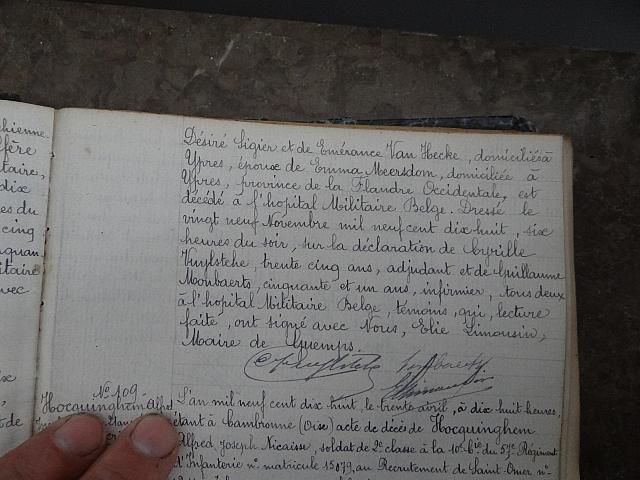 chienne
ffère
itaire,
dix
es du
cinq
nquan
itaire
vec
ix
t de
Désiré Sigier et de Emérance Van Hecke, domiciliés à
Ypres, époux de Emma Meersdom, domiciliée à
Ypres, province de la Flandre Occidentale, est
décédé à l'hopital Militaire Belge. Dressé le
vingt neuf Novembre mil neuf cent dix-huit, six
heures du soir, sur la déclaration de Cyrille
Vuylsteke, trente cinq ans, adjudant et de Guillaume
Monbaerts, cinquante et un ans, infirmier, tous deux
à l'hopital Militaire Belge, témoins, qui, lecture
faite, ont signé avec Nous, Elie Limousin,
Maire de Guemps.
N° 109
Hocquinghem Alfred
L'an mil neuf cent dix huit, le trente avril, à dix huit heures,
étant à Cambronne (Oise) acte de décès de Hocquinghem
Alfred Joseph Nicaisse, soldat de 2e classe à la 10e Cie du 57e Régiment
d'Infanterie n° matricule 15079, au Recrutement de Saint Omer n°